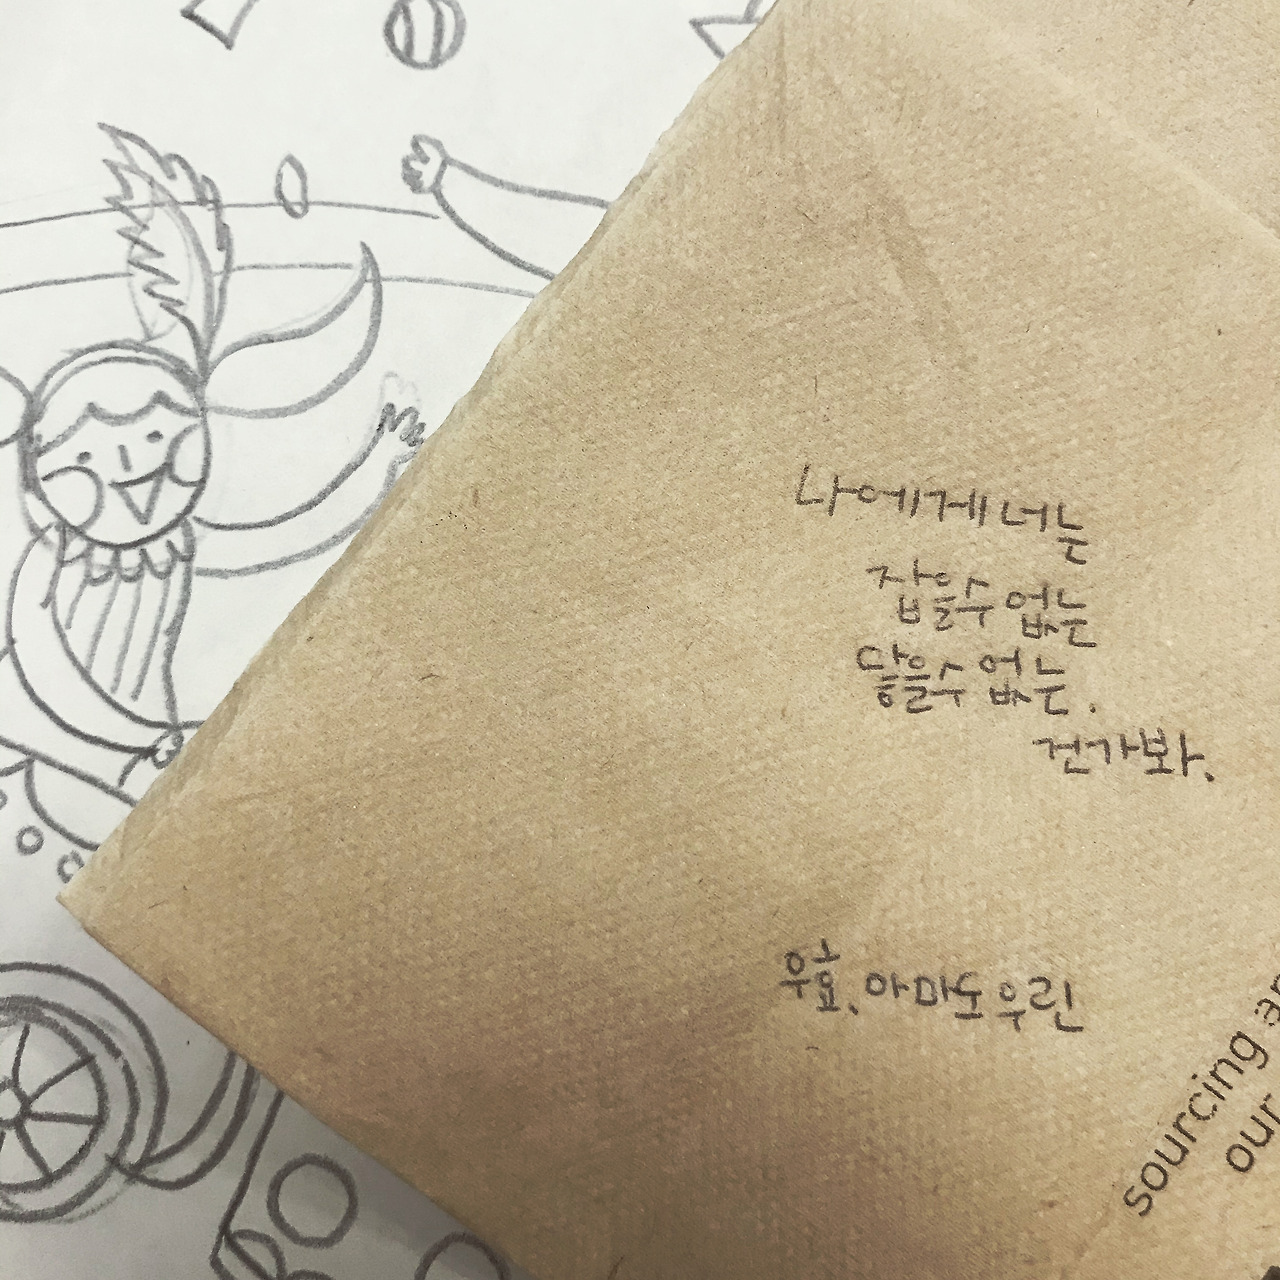 나에게 너는
잡을수 없는
닿을수 없는.
건가봐.
우효. 아마도우린
sourcing an
our